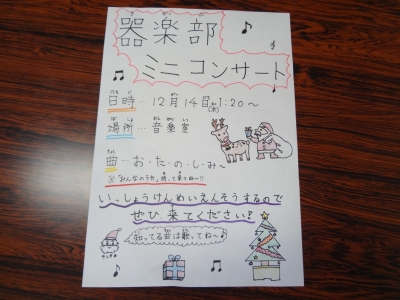 器楽部
ミニコンサート
日時…12月14日(木)1:20~
場所…音楽室
曲…お・た・の・し・み~
※「みんなのうた」持って来てね~!!
いっしょうけんめいえんそうするので
ぜひ来てください!
知ってる曲は歌ってね~♪